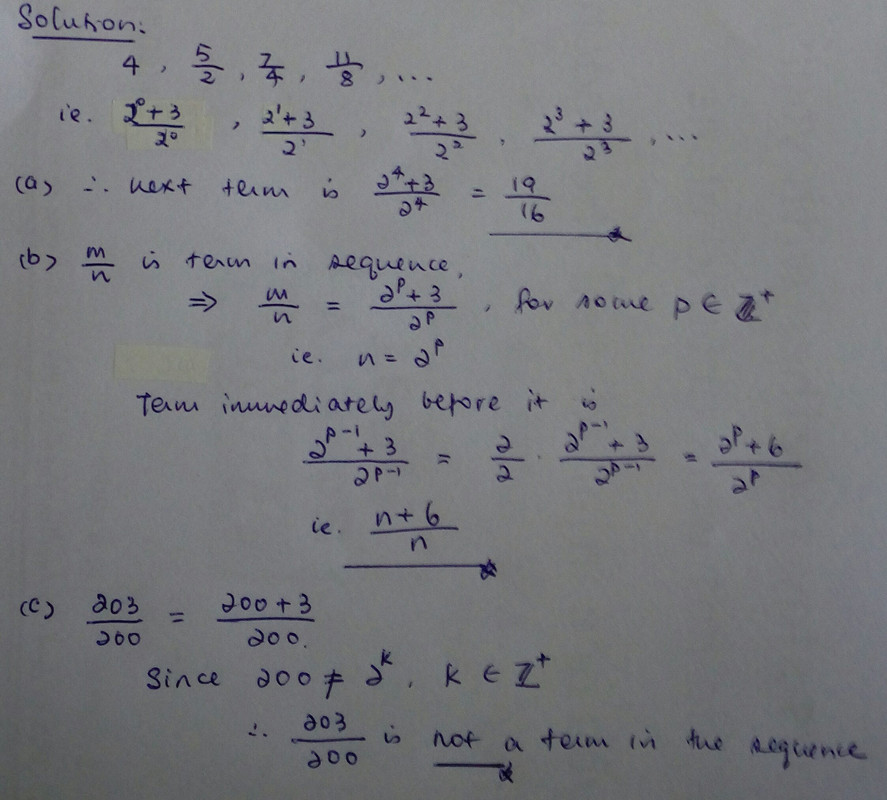 Solution:
4, 5/2, 7/4, 11/8, ...
ie. (2^0 + 3)/2^0, (2^1 + 3)/2^1, (2^2 + 3)/2^2, (2^3 + 3)/2^3, ...
(a) ∴ next term is (2^4 + 3)/2^4 = 19/16
(b) m/n is term in sequence,
⇒ m/n = (2^p + 3)/2^p, for some p ∈ ℤ^+
ie. n = 2^p
Term immediately before it is
(2^(p-1) + 3)/2^(p-1) = 2/2 · (2^(p-1) + 3)/2^(p-1) = (2^p + 6)/2^p
ie. (n + 6)/n
(c) 203/200 = (200 + 3)/200.
Since 200 ≠ 2^k, k ∈ ℤ^+
∴ 203/200 is not a term in the sequence